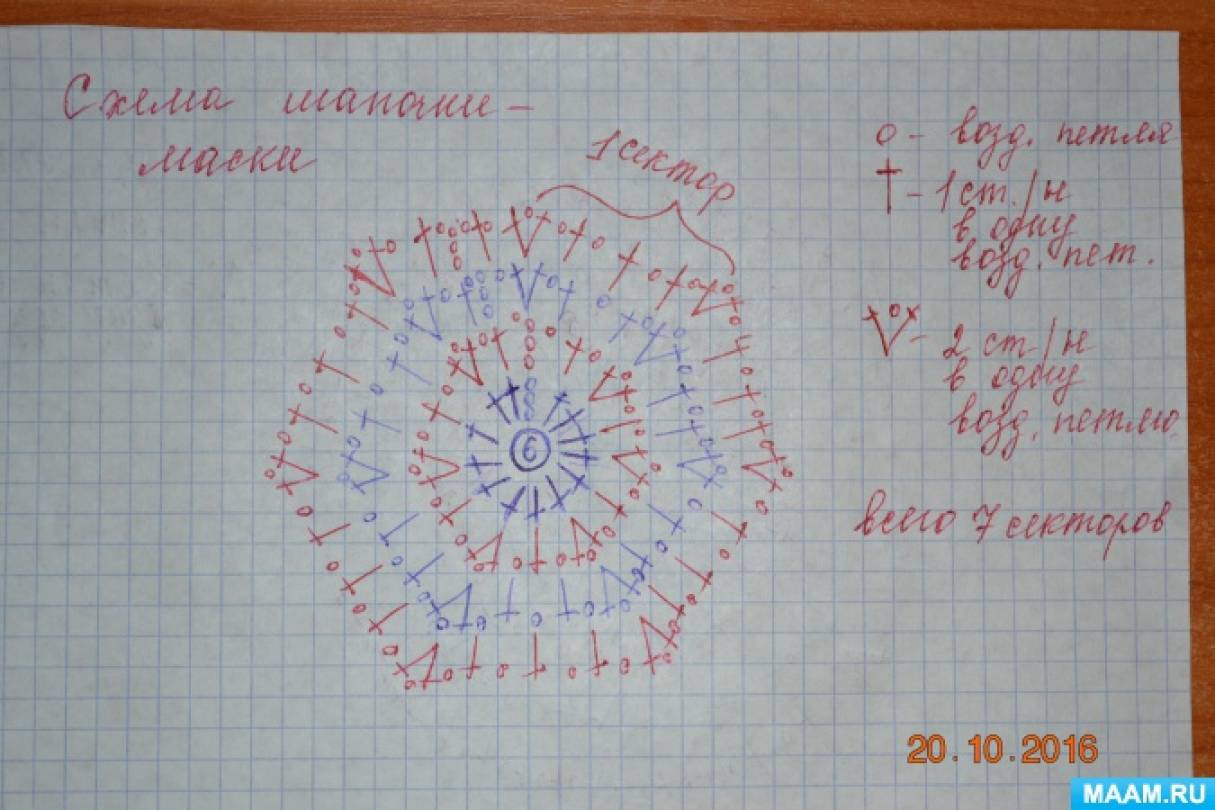 Схема шапочки-
маски
1 сектор
о - возд. петля
† - 1 ст./н
в одну
возд. пет.
- 2 ст/н
в одну
возд. петлю
6
всего 7 секторов
20.10.2016
MAAM.RU